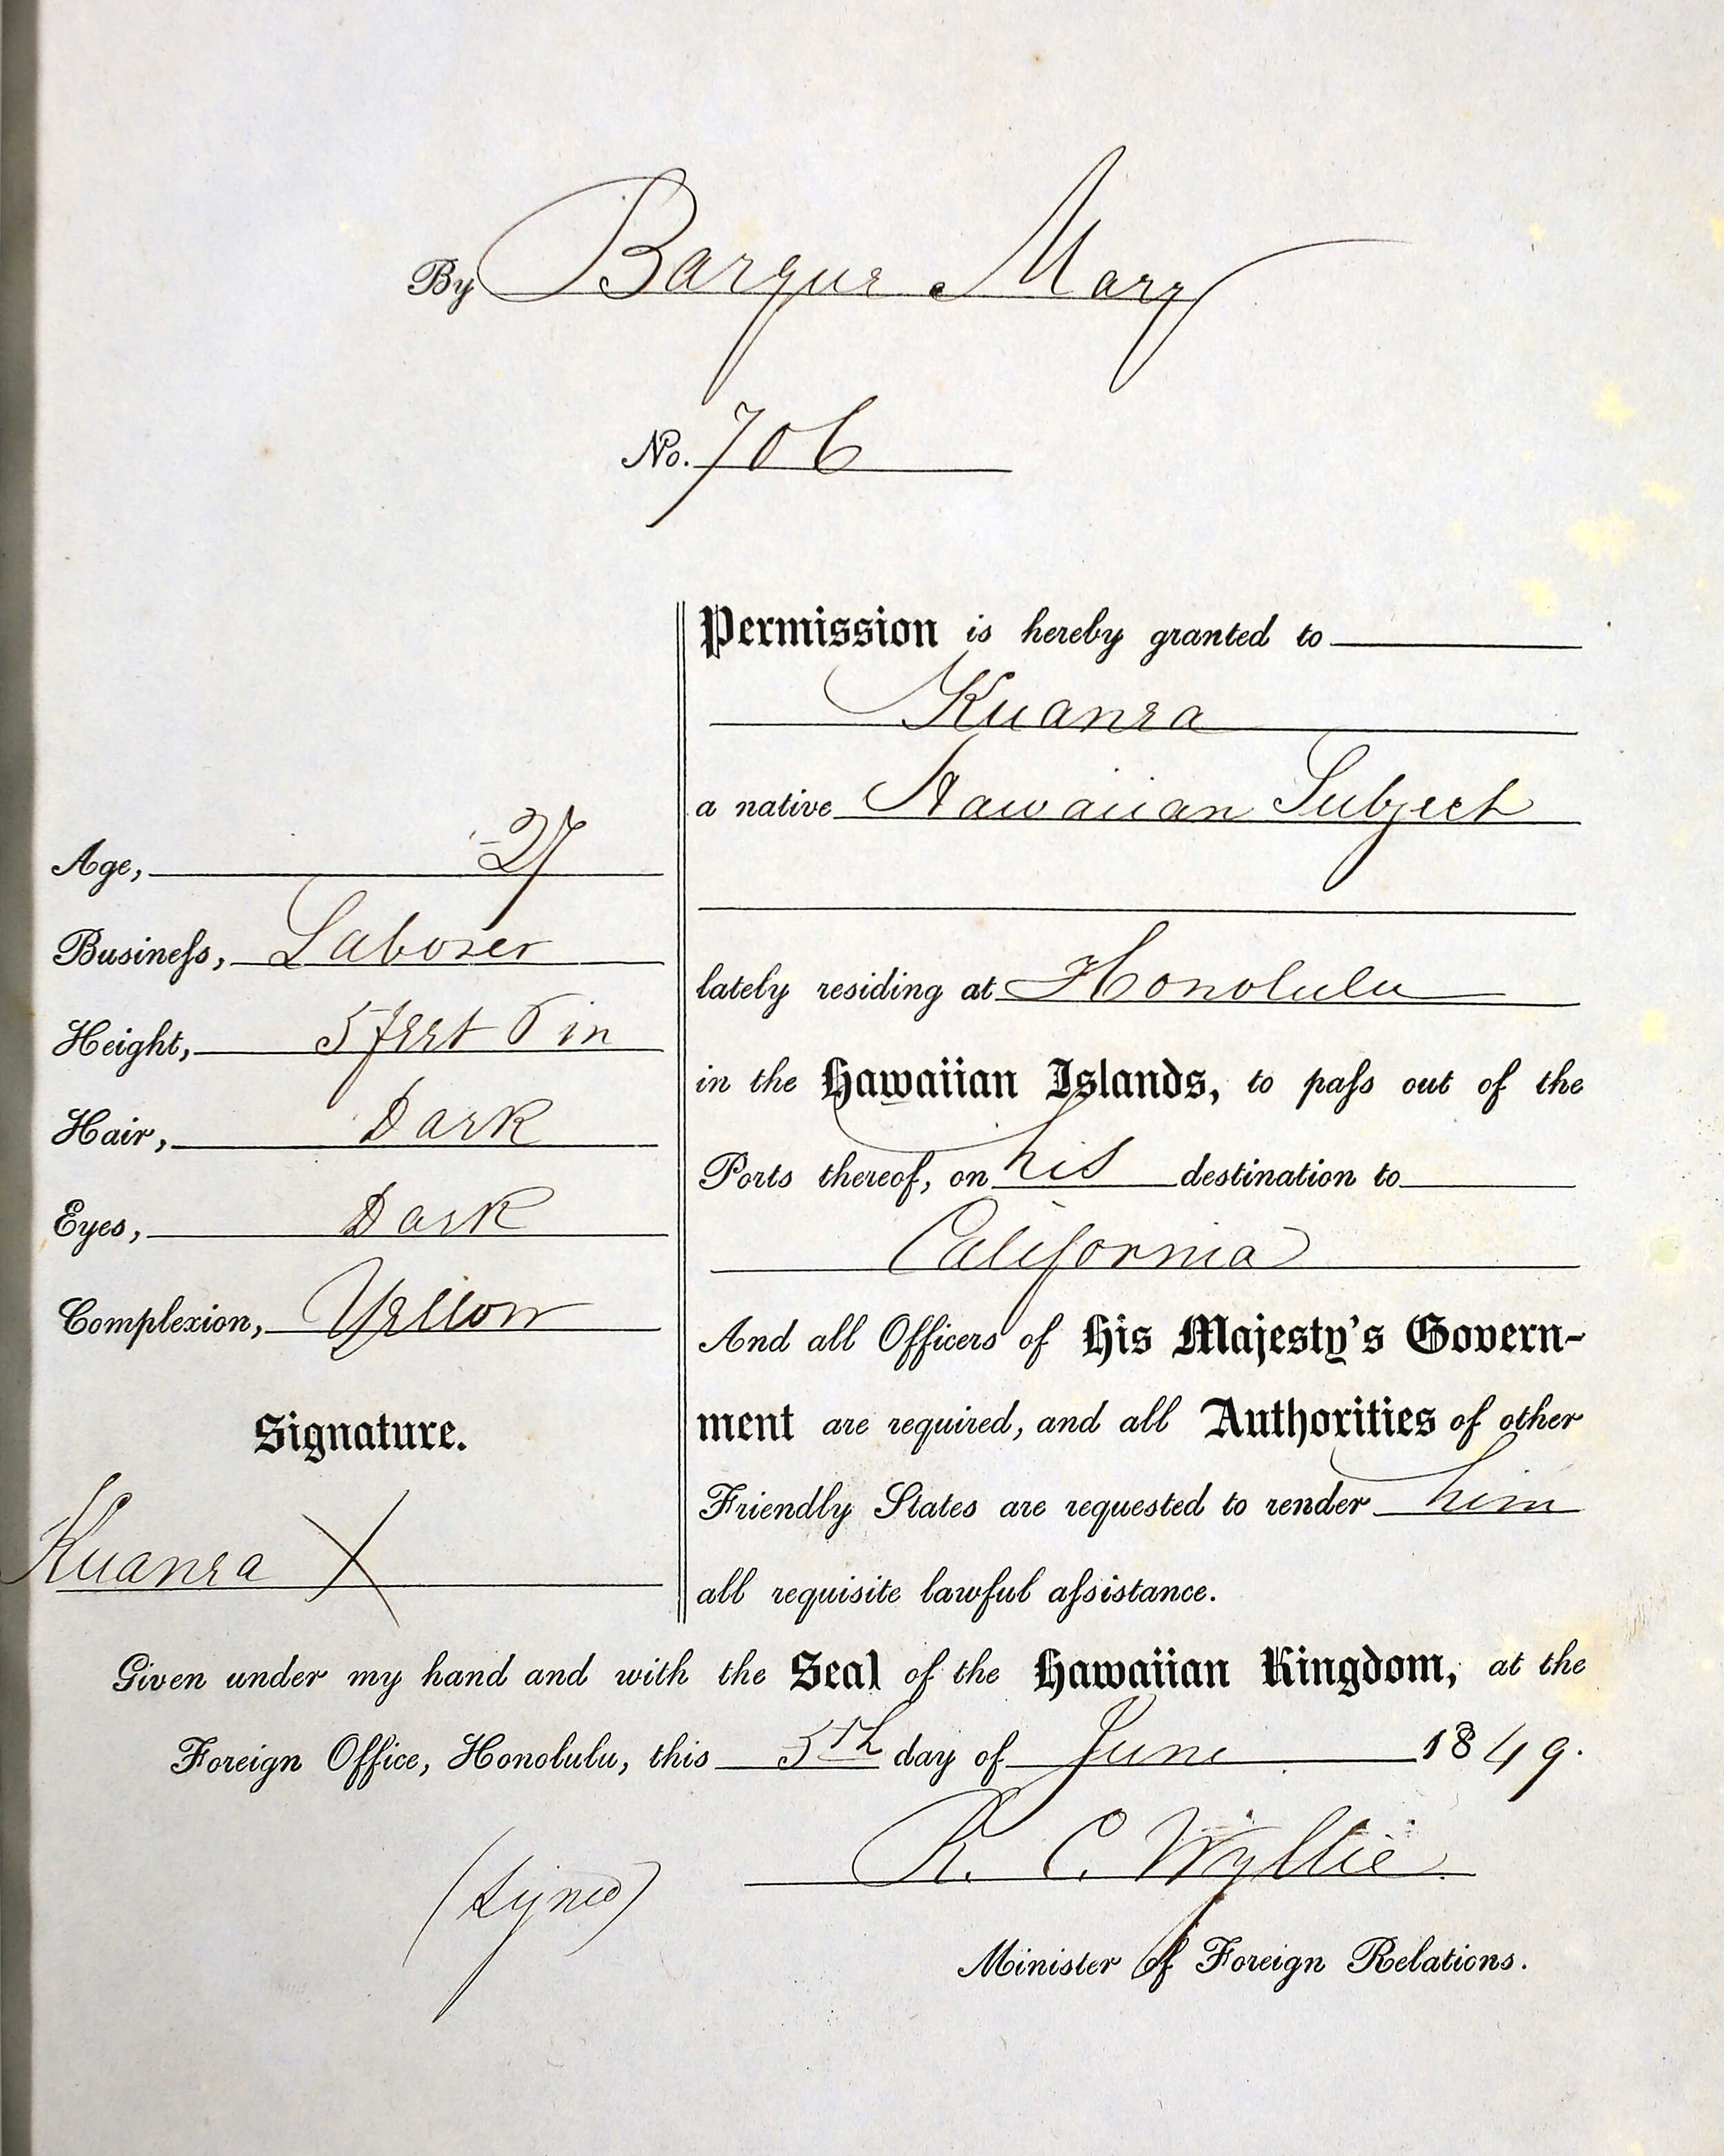 By Barque Mary
No. 706
Permission is hereby granted to
Kuanea
a native Hawaiian Subject
lately residing at Honolulu
in the Hawaiian Islands, to paſs out of the
Ports thereof, on his destination to
California
And all Officers of His Majesty's Govern-
ment are required, and all Authorities of other
Friendly States are requested to render him
all requisite lawful aſsistance.
Age, 27
Busineſs, Laborer
Height, 5 feet 6 in
Hair, Dark
Eyes, Dark
Complexion, Yellow
Signature.
Kuanea X
Given under my hand and with the Seal of the Hawaiian Kingdom, at the
Foreign Office, Honolulu, this 5th day of June 1849.
(Signed) R. C. Wyllie
Minister of Foreign Relations.